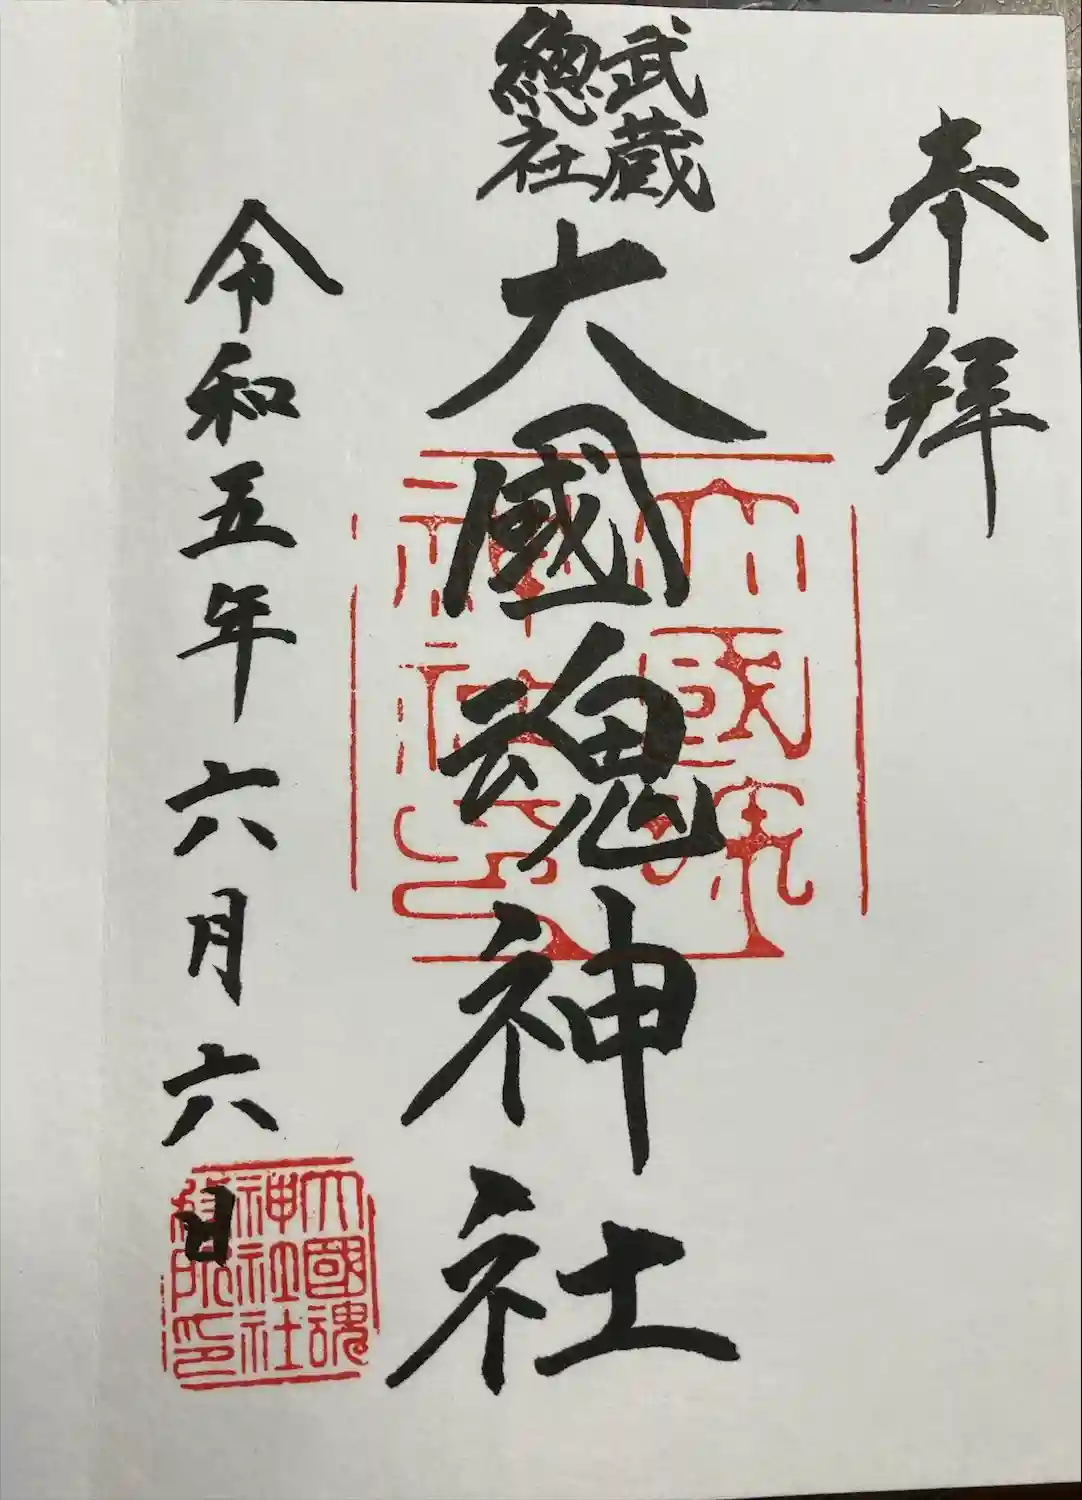 奉拝
武蔵
總社
大國魂神社
令和五年六月六日
大國魂
神社社
務所印